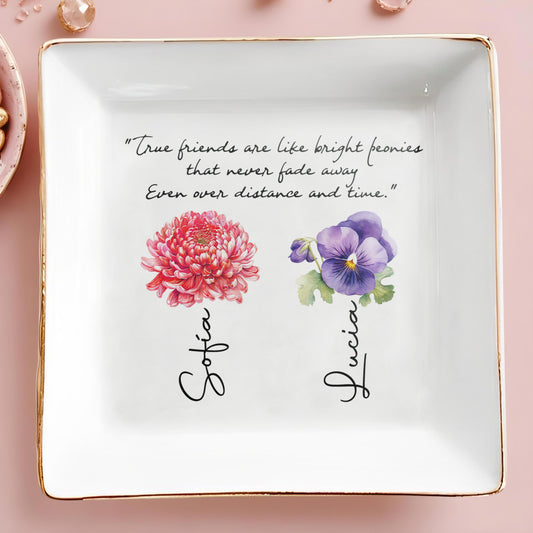 "True friends are like bright peonies
that never fade away
Even over distance and time."
Sofia
Lucia